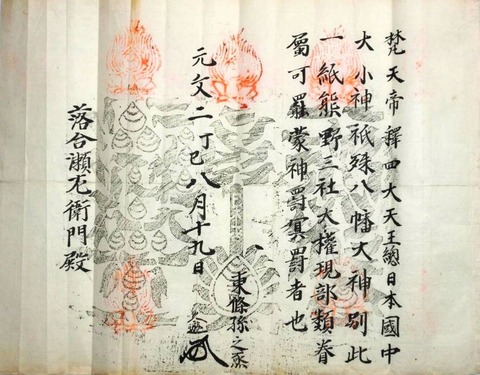 梵天帝釋四大天王總日本國中
大小神祇殊八幡大神別此
一紙熊野三社大權現部類眷
屬可罷蒙神罰冥罰者也
元文二丁巳八月十九日
東條孫之丞
落合瀬左衛門殿